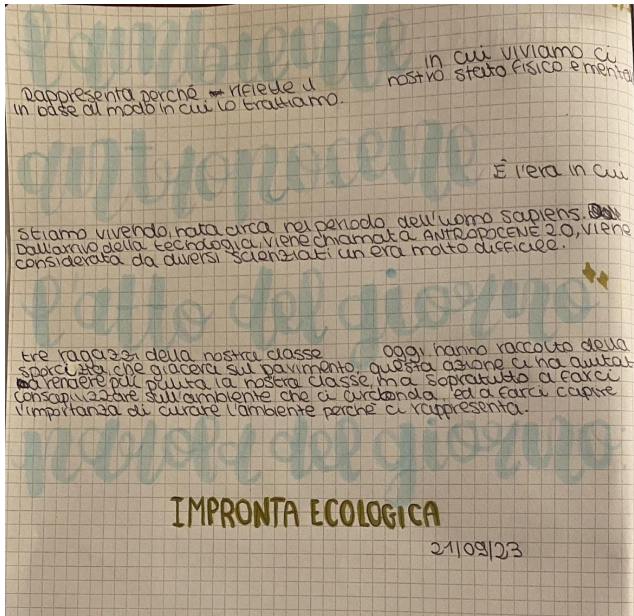 l'ambiente
in cui viviamo ci
Rappresenta perché riflette il nostro stato fisico e mental
in base al modo in cui lo trattiamo.
antropocene
È l'era in cui
stiamo vivendo, nata circa nel periodo dell'uomo sapiens.
Dall'arrivo della tecnologia, viene chiamata ANTROPOCENE 2.0, viene
considerata da diversi scienziati un era molto difficile.
l'atto del giorno
tre ragazzi della nostra classe oggi hanno raccolto della
sporcizia, che giaceva sul pavimento, questa azione ci ha aiutat
a rendere più pulita la nostra classe, ma sopratutto a farci
consapivizzare sull'ambiente che ci circonda, ed a farci capire
l'importanza di curare l'ambiente perché ci rappresenta.
parola del giorno:
IMPRONTA ECOLOGICA
21/09/23